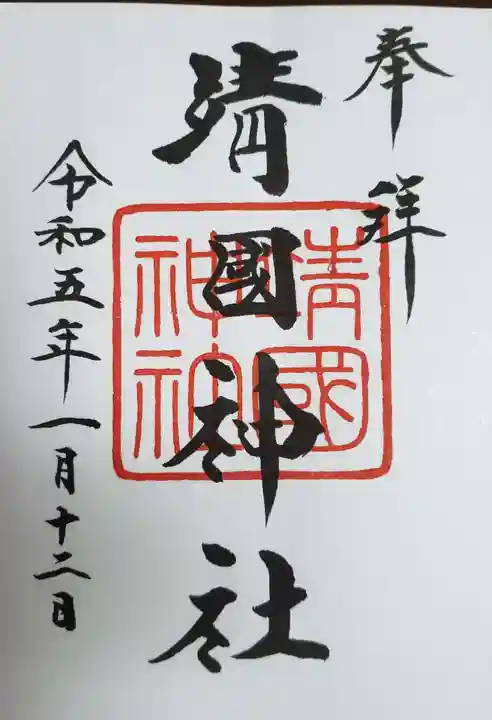 奉拝
靖國神社
靖國神社
令和五年一月十二日